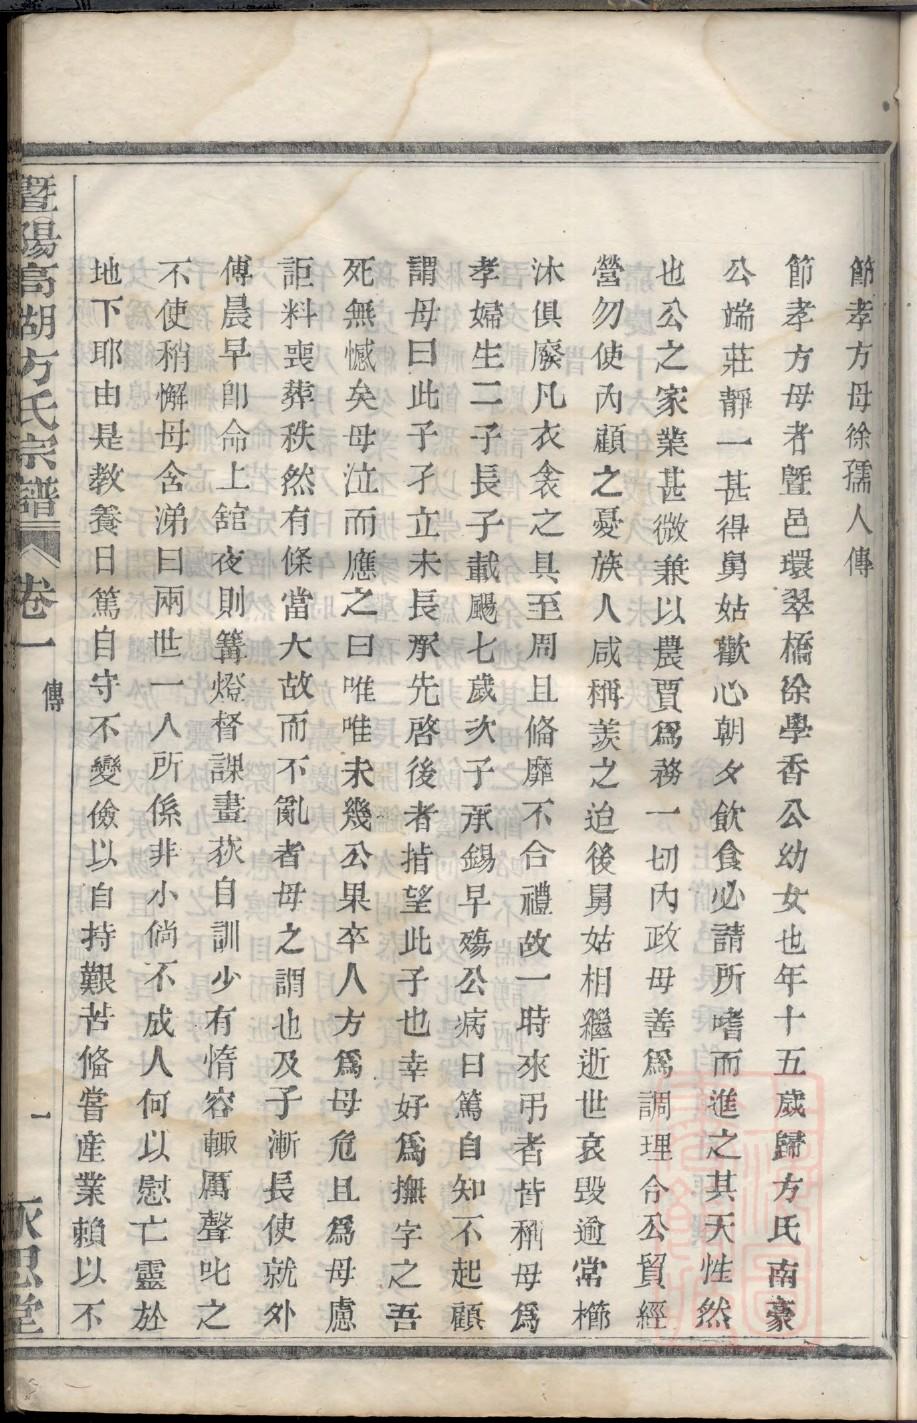 節孝方母徐孺人傳
節孝方母者暨邑環翠橋徐學香公幼女也年十五歲歸方氏南豪
公端莊靜一甚得舅姑歡心朝夕飲食必請所嗜而進之其天性然
也公之家業甚微兼以農賈爲務一切內政母善爲調理令公貿經
營勿使內顧之憂族人咸稱羨之迨後舅姑相繼逝世哀毀逾常櫛
沐俱廢凡衣衾之具至周且俻靡不合禮故一時來弔者皆稱母爲
孝婦生二子長子載颺七歲次子承錫早殤公病日篤自知不起顧
謂母曰此子孑立未長承先啓後者指望此子也幸好爲撫字之吾
死無憾矣母泣而應之曰唯唯未幾公果卒人方爲母危且爲母慮
詎料喪葬秩然有條當大故而不亂者母之謂也及子漸長使就外
傅晨早卽命上舘夜則篝燈督課畫荻自訓少有惰容輙厲聲叱之
不使稍懈母含涕曰兩世一人所係非小倘不成人何以慰亡靈於
地下耶由是教養日篤自守不變儉以自持艱苦俻嘗産業賴以不
暨陽高湖方氏宗譜 卷一 傳 一 永思堂